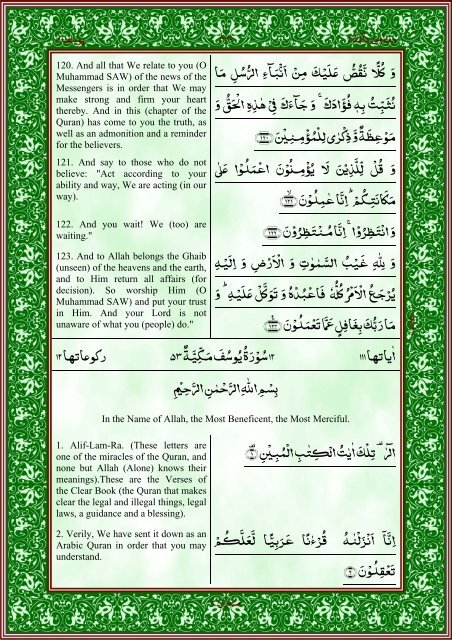 120. And all that We relate to you (O
Muhammad SAW) of the news of the
Messengers is in order that We may
make strong and firm your heart
thereby. And in this (chapter of the
Quran) has come to you the truth, as
well as an admonition and a reminder
for the believers.
وَ كُلًّا نَّقُصُّ عَلَيْكَ مِنْ اَنْۢبَآءِ الرُّسُلِ مَا
نُثَبِّتُ بِهٖ فُؤَادَكَ ۚ وَ جَآءَكَ فِیْ هٰذِهِ الْحَقُّ وَ
مَوْعِظَةٌ وَّ ذِكْرٰی لِلْمُؤْمِنِیْنَ ۱۲۰
121. And say to those who do not
believe: "Act according to your
ability and way, We are acting (in our
way).
وَ قُلْ لِّلَّذِیْنَ لَا یُؤْمِنُوْنَ اعْمَلُوْا عَلٰی
مَكَانَتِكُمْ ؕ اِنَّا عٰمِلُوْنَ ۱۲۱
122. And you wait! We (too) are
waiting."
وَ انْتَظِرُوْا ۚ اِنَّا مُنْتَظِرُوْنَ ۱۲۲
123. And to Allah belongs the Ghaib
(unseen) of the heavens and the earth,
and to Him return all affairs (for
decision). So worship Him (O
Muhammad SAW) and put your trust
in Him. And your Lord is not
unaware of what you (people) do."
وَ لِلّٰهِ غَیْبُ السَّمٰوٰتِ وَ الْاَرْضِ وَ اِلَیْهِ
یُرْجَعُ الْاَمْرُ كُلُّهٗ فَاعْبُدْهُ وَ تَوَكَّلْ عَلَیْهِ ؕ وَ
مَا رَبُّكَ بِغَافِلٍ عَمَّا تَعْمَلُوْنَ ۱۲۳
اٰیاتها ۱۱۱ ۱۲ سُوْرَةُ یُوْسُفَ مَكِّیَّةٌ ۵۳ ركوعاتها ۱۲
بِسْمِ اللّٰهِ الرَّحْمٰنِ الرَّحِیْمِ
In the Name of Allah, the Most Beneficent, the Most Merciful.
1. Alif-Lam-Ra. (These letters are
one of the miracles of the Quran, and
none but Allah (Alone) knows their
meanings).These are the Verses of
the Clear Book (the Quran that makes
clear the legal and illegal things, legal
laws, a guidance and a blessing).
الٓرٰ ۫ تِلْكَ اٰیٰتُ الْكِتٰبِ الْمُبِیْنِ ۱
2. Verily, We have sent it down as an
Arabic Quran in order that you may
understand.
اِنَّاۤ اَنْزَلْنٰهُ قُرْءٰنًا عَرَبِیًّا لَّعَلَّكُمْ
تَعْقِلُوْنَ ۲